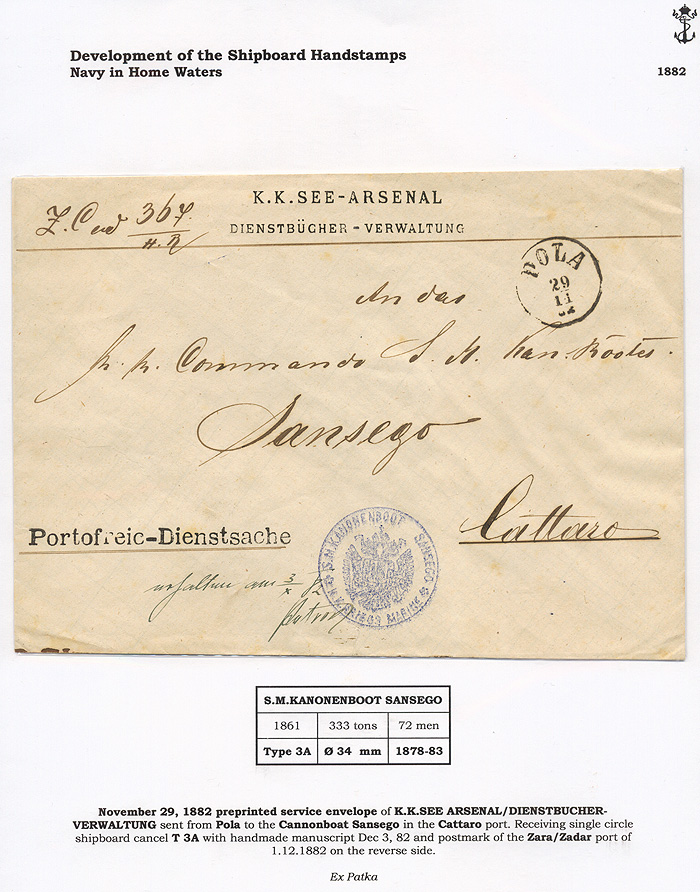 Development of the Shipboard Handstamps
Navy in Home Waters
1882
K.K.SEE-ARSENAL
DIENSTBÜCHER-VERWALTUNG
367
POLA
29
11
82
An das
K. K. Commando S. M. Kan. Bootes.
Sansego
Cattaro
Portofreie-Dienstsache
S.M.KANONENBOOT SANSEGO
K.K.KRIEGS MARINE
erhalten am 3/X 82
S.M.KANONENBOOT SANSEGO
1861 333 tons 72 men
Type 3A Ø 34 mm 1878-83
November 29, 1882 preprinted service envelope of K.K.SEE ARSENAL/DIENSTBUCHER-
VERWALTUNG sent from Pola to the Cannonboat Sansego in the Cattaro port. Receiving single circle
shipboard cancel T 3A with handmade manuscript Dec 3, 82 and postmark of the Zara/Zadar port of
1.12.1882 on the reverse side.
Ex Patka